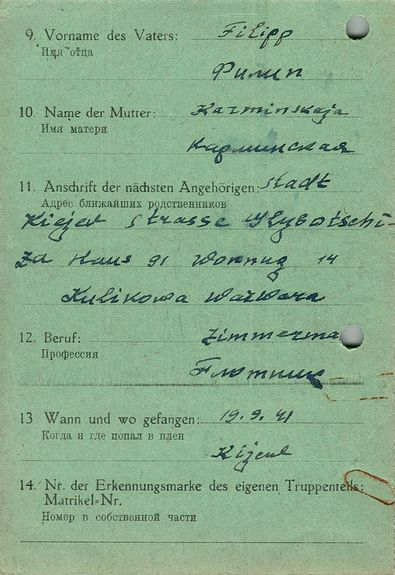 9. Vorname des Vaters: Filipp
Имя отца
Филип
10. Name der Mutter: Karminskaja
Имя матери
Карминская
11. Anschrift der nächsten Angehörigen: Stadt
Адрес ближайших родственников
Kiejew Strasse
Haus 91 Wonnug 14
Kulikowa Warwara
12. Beruf: Zimmerma
Профессия
Плотник
13 Wann und wo gefangen: 19.9.41
Когда и где попал в плен
Kijew
14. Nr. der Erkennungsmarke des eigenen Truppenteils:
Matrikel-Nr.
Номер в собственной части